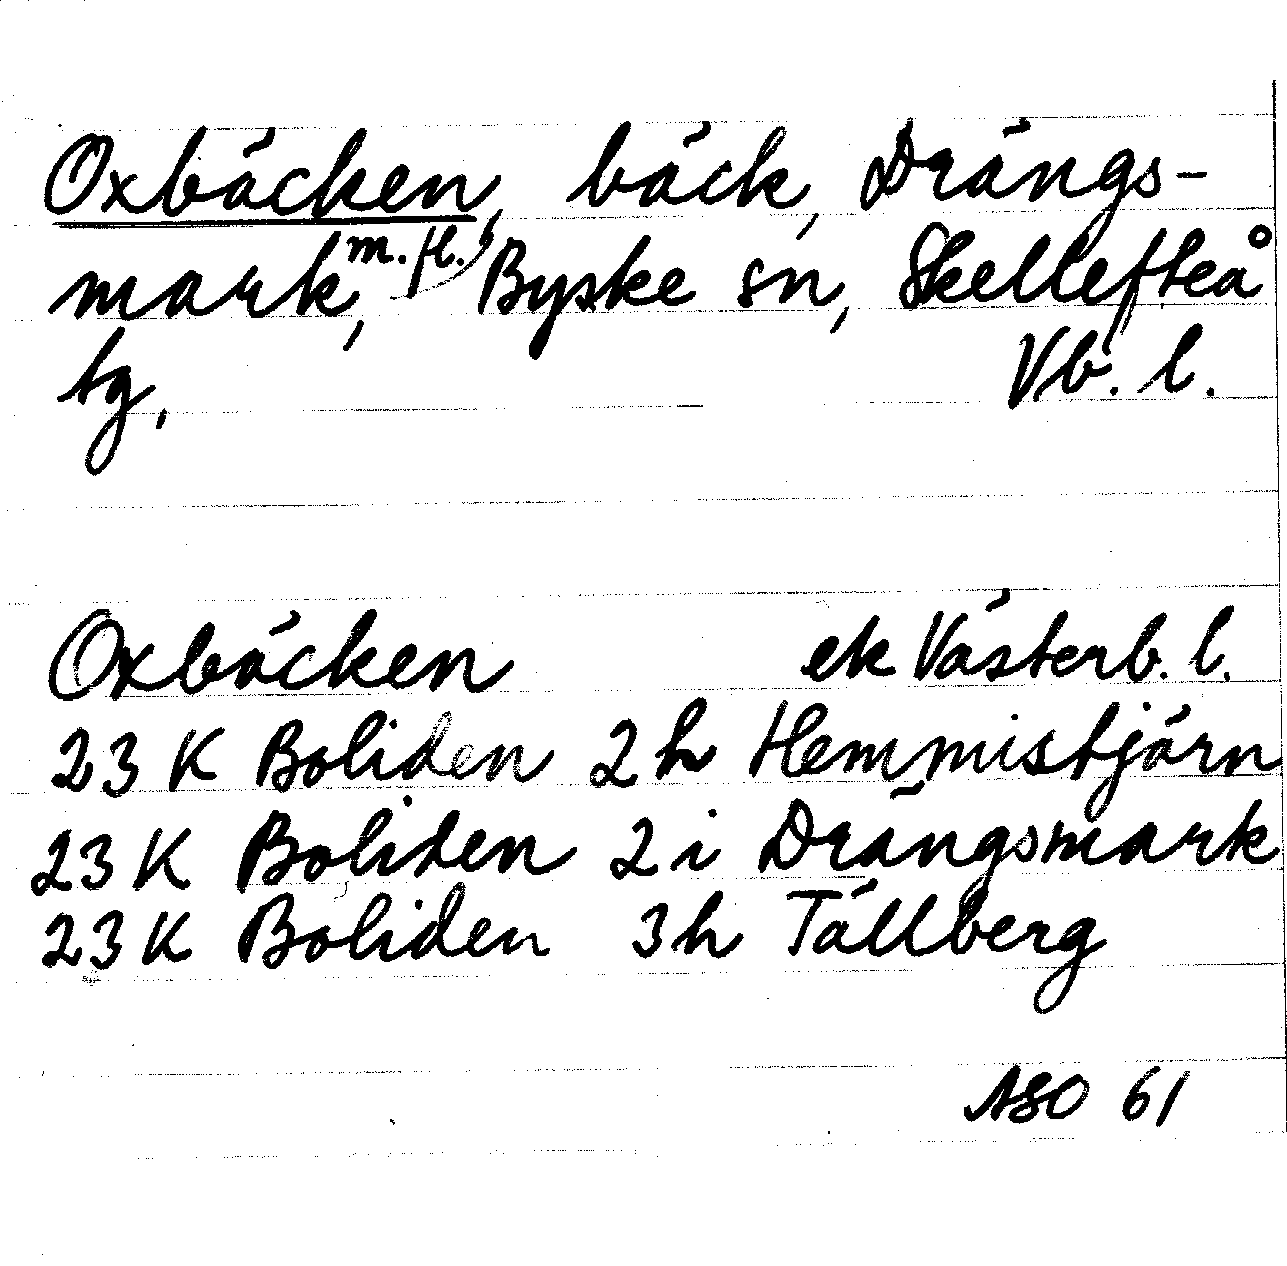 Oxbäcken, bäck, Drängs-
mark, m.fl., Byske sn, Skellefteå
tg, Vb. l.
Oxbäcken ek Västerb. l.
23 K Boliden 2 h Hemmistjärn
23 K Boliden 2 i Drängsmark
23 K Boliden 3 h Tällberg
ASO 61